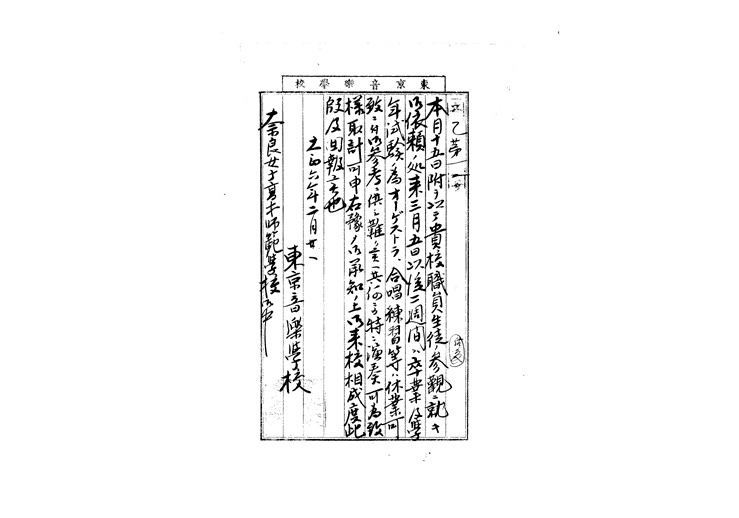 東京音樂學校
乙第
本月十五日附ヲ以テ貴校職員生徒参觀ニ就キ
御依頼ノ処来三月五日以後二週間ハ卒業及學
年試験ノ為オーケストラ、合唱練習等ハ休業可
致ニ付御参考ニ供シ難ク其何ニテ特ニ演奏可為致
様取計可申右豫ノ御承知ノ上御来校相成度此
段及回報候也
大正六年二月廿一
東京音樂學校
奈良女子高等師範學校御中